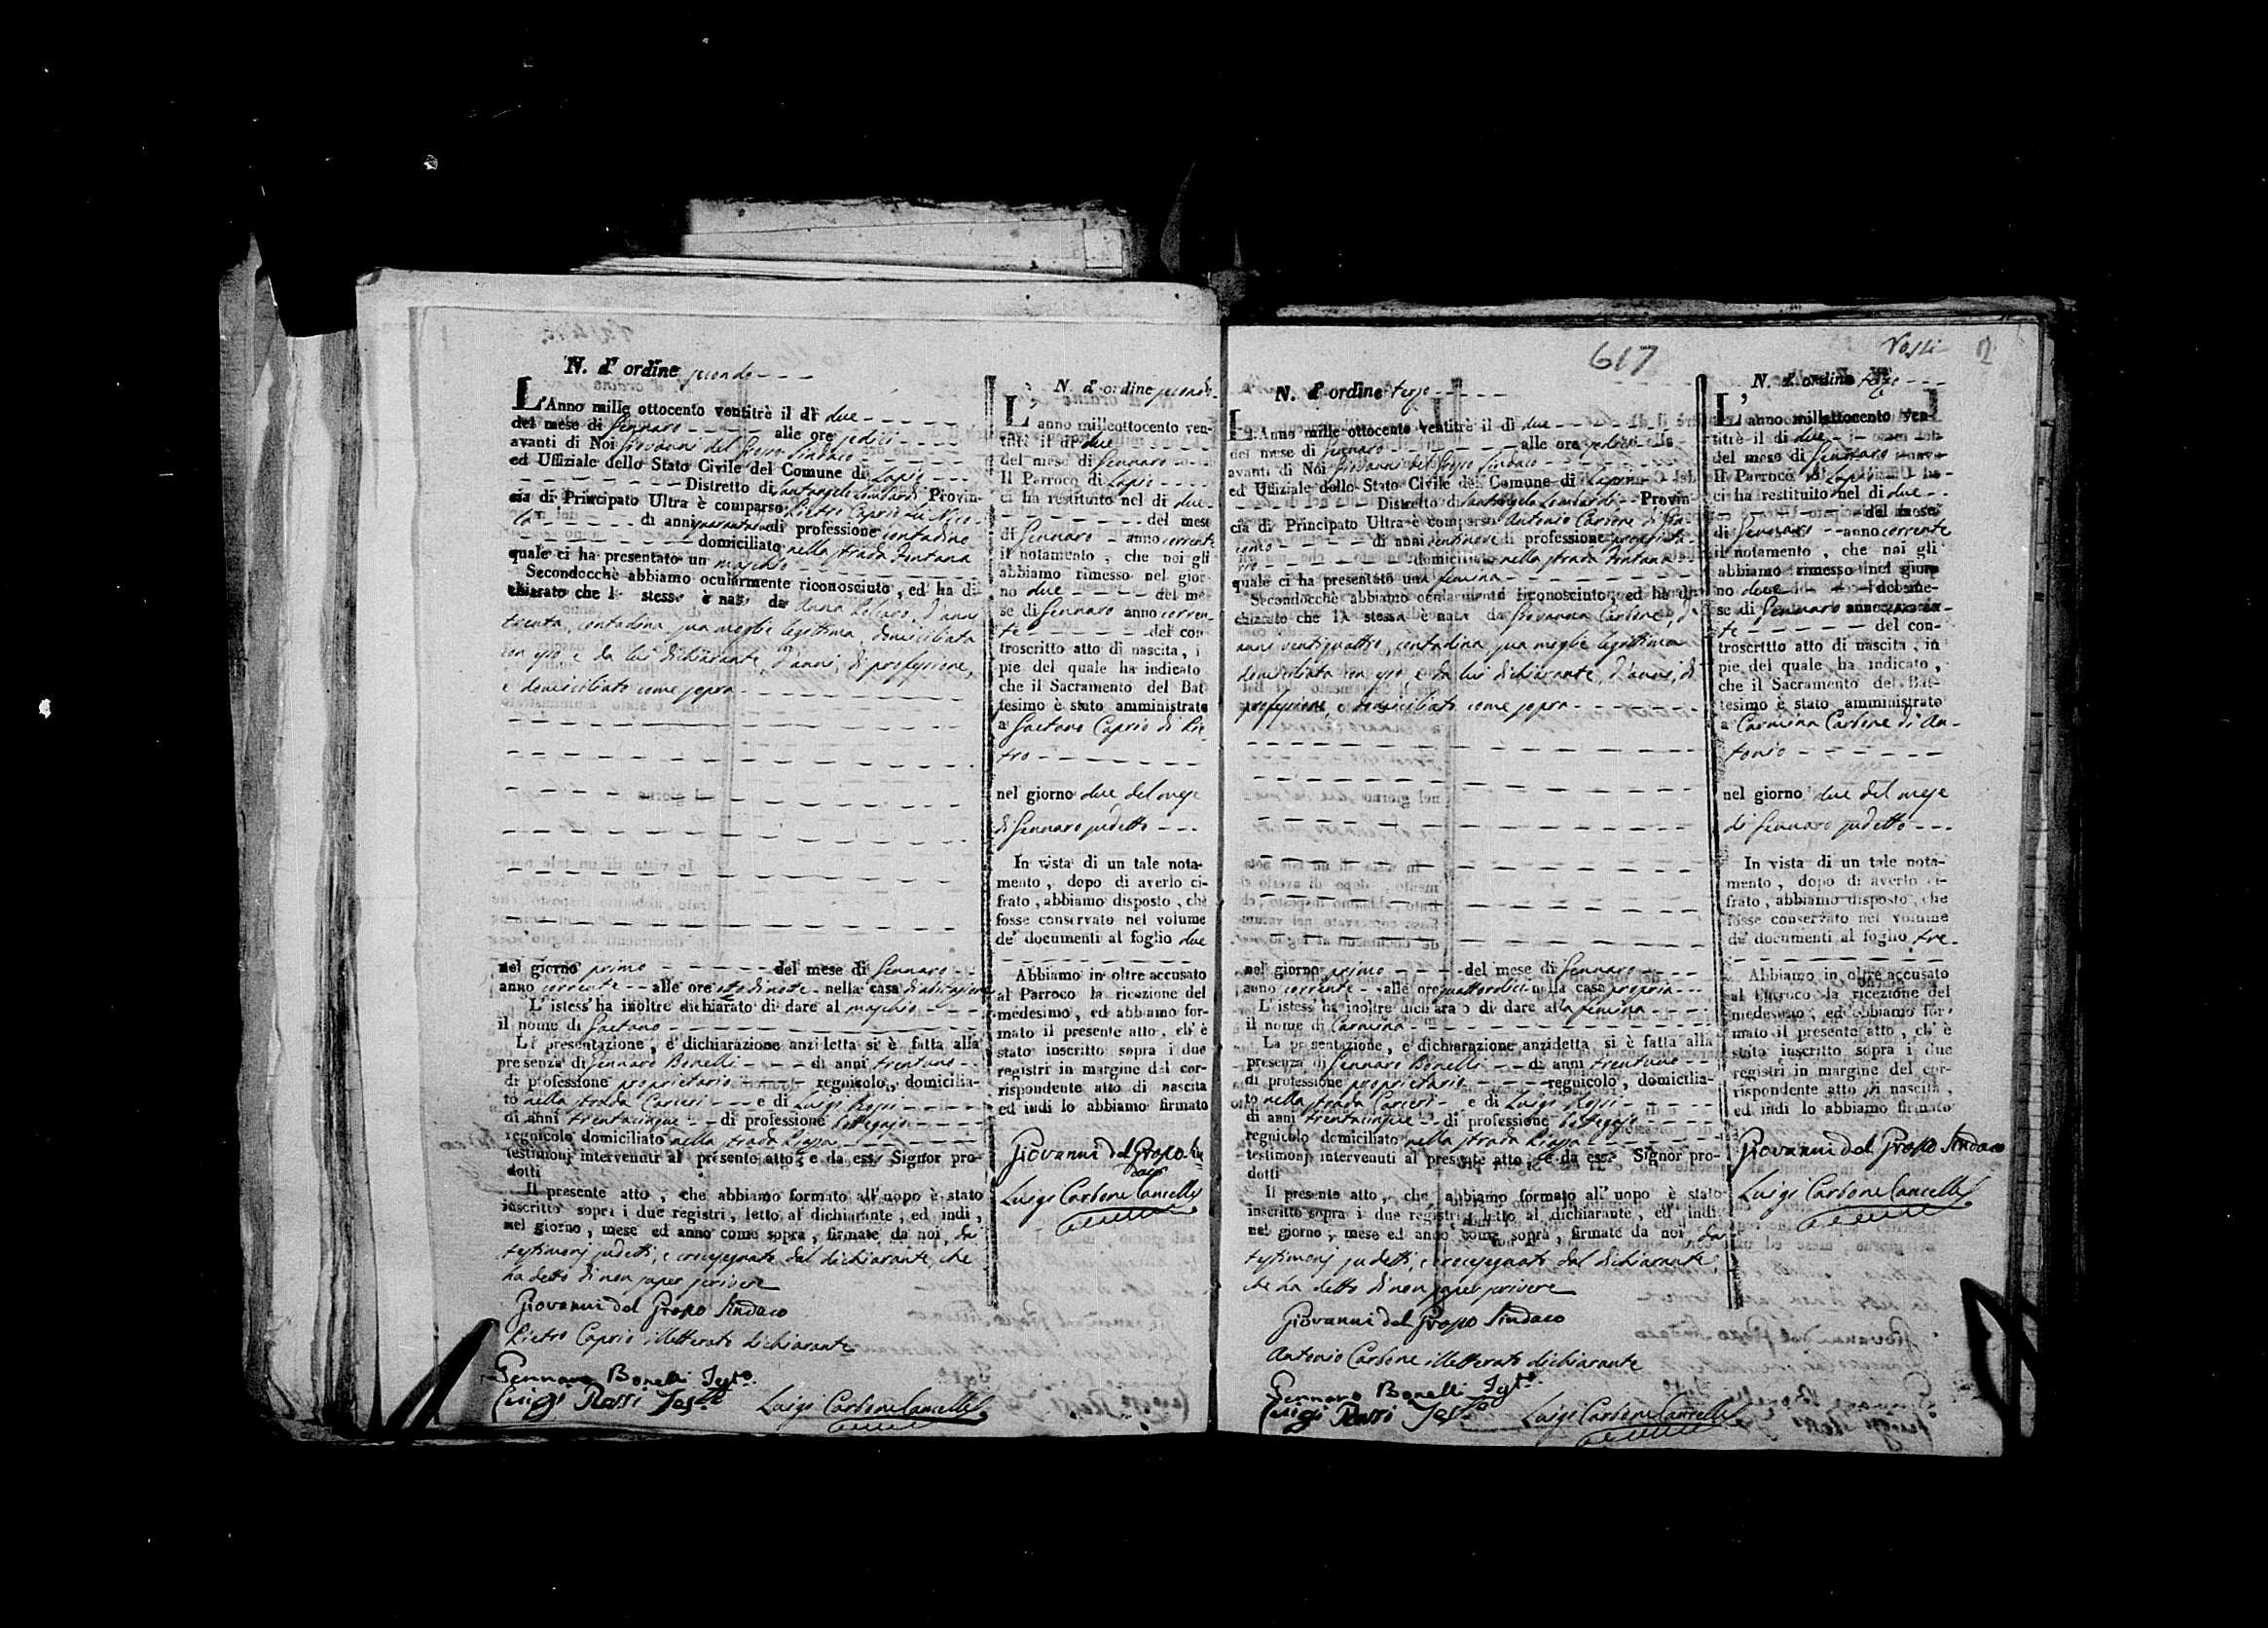 N. d' ordine secondo
L'Anno mille ottocento ventitrè il dì due
del mese di Gennaro alle ore sedici
avanti di Noi Giovanni del Grosso Sindaco
ed Uffiziale dello Stato Civile del Comune di Lapio
Distretto di Santangelo Lombardi Provin-
cia di Principato Ultra è comparso Pietro Caprio di Nico-
la di anni di professione contadino
domiciliato nella strada Fontana
quale ci ha presentato un maschio
Secondocchè abbiamo ocularmente riconosciuto, ed ha di-
chiarato che l stesso è nato da Anna d'anni
trenta, contadina sua moglie legittima, domiciliata
con esso e da lui dichiarante, d'anni, di professione,
e domiciliato come sopra
nel giorno primo del mese di Gennaro
anno corrente alle ore di notte nella casa d'abitazione
L'istess' ha inoltre dichiarato di dare al maschio
il nome di Gaetano
La presentazione, e dichiarazione anzidetta si è fatta alla
presenza di Gennaro Bonelli di anni trentuno
di professione proprietario regnicolo, domicilia-
to nella strada Carceri e di Luigi Rossi
di anni trentacinque di professione bottegajo
regnicolo domiciliato nella strada Piazza
testimonj intervenuti al presente atto, e da esso Signor pro-
dotti
Il presente atto, che abbiamo formato all'uopo è stato
inscritto sopra i due registri, letto al dichiarante, ed indi,
nel giorno, mese ed anno come sopra, firmato da noi, da
testimonj sudetti, e crocesegnato dal dichiarante, che
ha detto di non saper scrivere
Giovanni del Grosso Sindaco
Pietro Caprio illetterato dichiarante
Gennaro Bonelli Testo.
Luigi Rossi Testo
Luigi Carbone Cancelle
N. d' ordine secondo
L'
anno milleottocento ven-
titrè il dì due
del mese di Gennaro
Il Parroco di Lapio
ci ha restituito nel di due
del mese
di Gennaro anno corrente
il notamento, che noi gli
abbiamo rimesso nel gior-
no due del me-
se di Gennaro anno corren-
te del con-
troscritto atto di nascita, i
pie del quale ha indicato
che il Sacramento del Bat-
tesimo è stato amministrato
a Gaetano Caprio di Pie-
tro
nel giorno due del mese
di Gennaro sudetto
In vista di un tale nota-
mento, dopo di averlo ci-
frato, abbiamo disposto, che
fosse conservato nel volume
de' documenti al foglio due
Abbiamo in oltre accusato
al Parroco la ricezione del
medesimo, ed abbiamo for-
mato il presente atto, ch' è
stato inscritto sopra i due
registri in margine del cor-
rispondente atto di nascita
ed indi lo abbiamo firmato
Giovanni del Grosso Sin
daco
Luigi Carbone Cancelle
617
2
N. d' ordine terzo
L'Anno mille ottocento ventitrè il dì due
del mese di Gennaro alle ore sedici
avanti di Noi Giovanni del Grosso Sindaco
ed Uffiziale dello Stato Civile del Comune di Lapio
Distretto di Santangelo Lombardi Provin-
cia di Principato Ultra è comparso Antonio Carbone di Gia-
como di anni ventinove di professione proprieta-
rio domiciliato nella strada Fontana
quale ci ha presentato una femina
Secondocchè abbiamo ocularmente riconosciuto, ed ha di-
chiarato che la stessa è nata da Giovanna Carbone, d'
anni ventiquattro, contadina sua moglie legittima
domiciliata con esso, e da lui dichiarante, d'anni, di
professione, e domiciliato come sopra
nel giorno primo del mese di Gennaro
anno corrente alle ore quattordici nella casa propria
L'istess' ha inoltre dichiarato di dare alla femina
il nome di Carmina
La presentazione, e dichiarazione anzidetta si è fatta alla
presenza di Gennaro Bonelli di anni trentuno
di professione proprietario regnicolo, domicilia-
to nella strada Carceri e di Luigi Rossi
di anni trentacinque di professione bottegajo
regnicolo domiciliato nella strada Piazza
testimonj intervenuti al presente atto, e da esso Signor pro-
dotti
Il presente atto, che abbiamo formato all' uopo è stato
inscritto sopra i due registri, letto al dichiarante, ed indi
nel giorno, mese ed anno come sopra, firmato da noi, da
testimonj sudetti, e crocesegnato dal dichiarante,
che ha detto di non saper scrivere
Giovanni del Grosso Sindaco
Antonio Carbone illetterato dichiarante
Gennaro Bonelli Testo.
Luigi Rossi Testo
Luigi Carbone Cancelle
N. d' ordine terzo
L'
anno milleottocento ven-
titrè il di due
del mese di Gennaro
Il Parroco di Lapio
ci ha restituito nel di due
del mese
di Gennaro anno corrente
il notamento, che noi gli
abbiamo rimesso nel gior-
no due del me-
se di Gennaro anno corren-
te del con-
troscritto atto di nascita, in
pie del quale ha indicato,
che il Sacramento del Bat-
tesimo è stato amministrato
a Carmina Carbone di An-
tonio
nel giorno due del mese
di Gennaro sudetto
In vista di un tale nota-
mento, dopo di averlo ci-
frato, abbiamo disposto, che
fosse conservato nel volume
de' documenti al foglio tre
Abbiamo in oltre accusato
al Parroco la ricezione del
medesimo, ed abbiamo for-
mato il presente atto, ch' è
stato inscritto sopra i due
registri in margine del cor-
rispondente atto di nascita,
ed indi lo abbiamo firmato
Giovanni del Grosso Sindaco
Luigi Carbone Cancelle